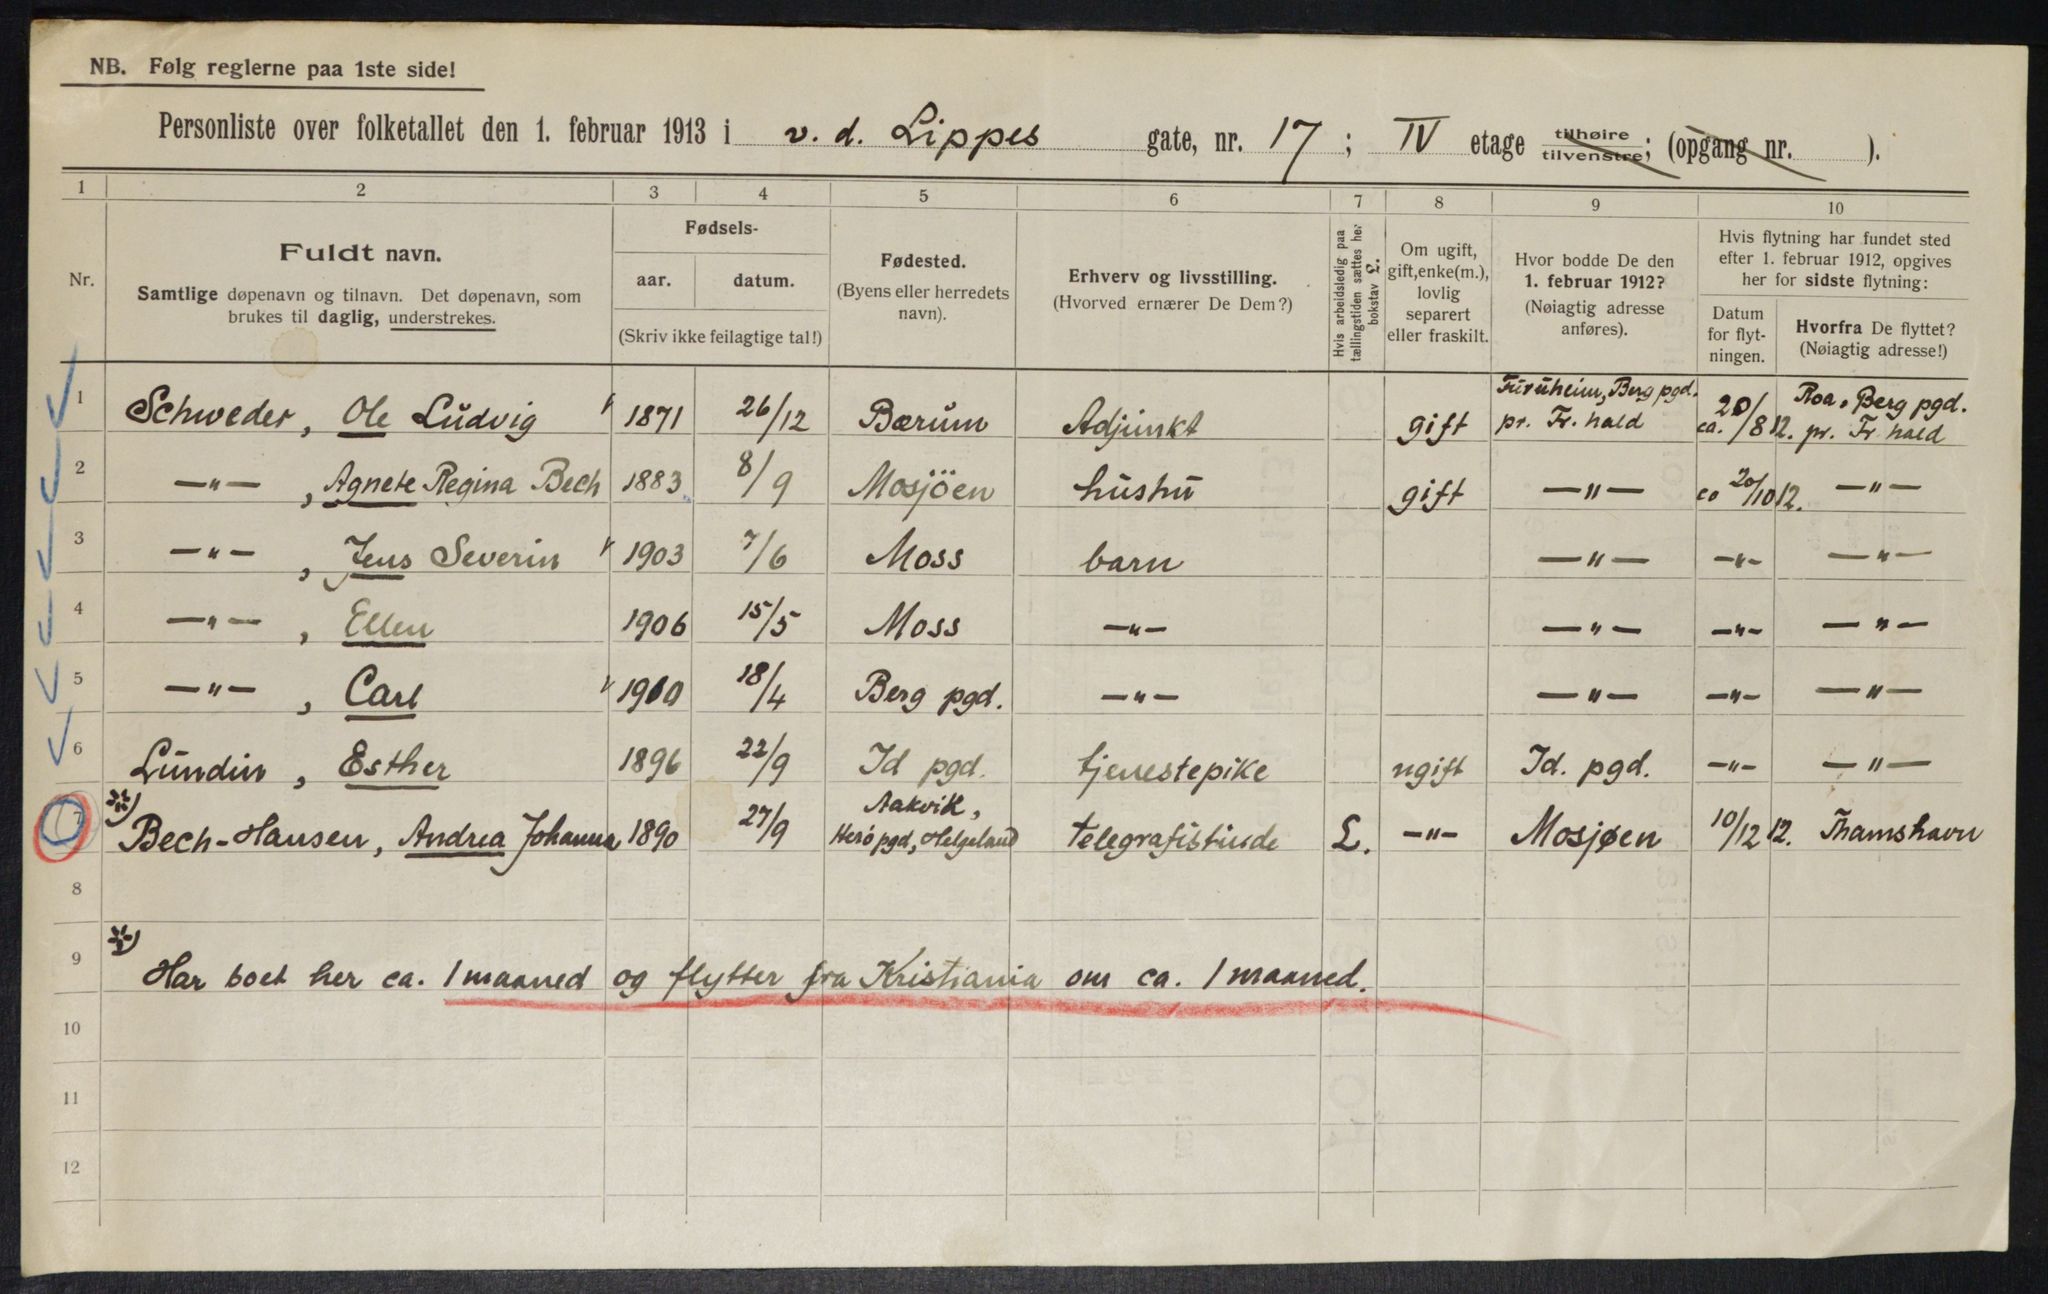 NB. Følg reglerne paa 1ste side!
Personliste over folketallet den 1. februar 1913 i v. d. Lippes gate, nr. 17; IV etage tilhøire tilvenstre; (opgang nr. ).
1 2 3 4 5 6 7 8 9 10
Nr.
Fuldt navn.
Samtlige døpenavn og tilnavn. Det døpenavn, som
brukes til daglig, understrekes.
Fødsels-
aar. datum.
(Skriv ikke feilagtige tal!)
Fødested.
(Byens eller herredets
navn).
Erhverv og livsstilling.
(Hvorved ernærer De Dem?)
Hvis arbeidsledig paa
tællingstiden sættes her
bokstav L.
Om ugift,
gift, enke(m.),
lovlig
separert
eller fraskilt.
Hvor bodde De den
1. februar 1912?
(Nøiagtig adresse
anføres).
Hvis flytning har fundet sted
efter 1. februar 1912, opgives
her for sidste flytning:
Datum
for flyt-
ningen.
Hvorfra De flyttet?
(Nøiagtig adresse!)
1 Schweder, Ole Ludvig 1871 26/12 Bærum Adjunkt gift Furuheim, Berg pgd. pr. Fr. hald ca. 20/8 12. Roa, Berg pgd. pr. Fr hald
2 —"— , Agnete Regina Bech 1883 8/9 Mosjöen hushu gift —"— ca 20/10 12. —"—
3 —"— , Jens Severin 1903 7/6 Moss barn —"— —"— —"—
4 —"— , Ellen 1906 15/5 Moss —"— —"— —"— —"—
5 —"— , Carl 1910 18/4 Berg pgd. —"— —"— —"— —"—
6 Lundin, Esther 1896 22/9 Id pgd. tjenestepike ugift Id. pgd. —"— —"—
7 *) Bech-Hansen, Andrea Johanna 1890 27/9 Aakvik, Herö pgd, Helgeland telegrafistinde L. —"— Mosjøen 10/12 12. Thamshavn
8
*)
9 Har boet her ca. 1 maaned og flytter fra Kristiania om ca. 1 maaned.
10
11
12